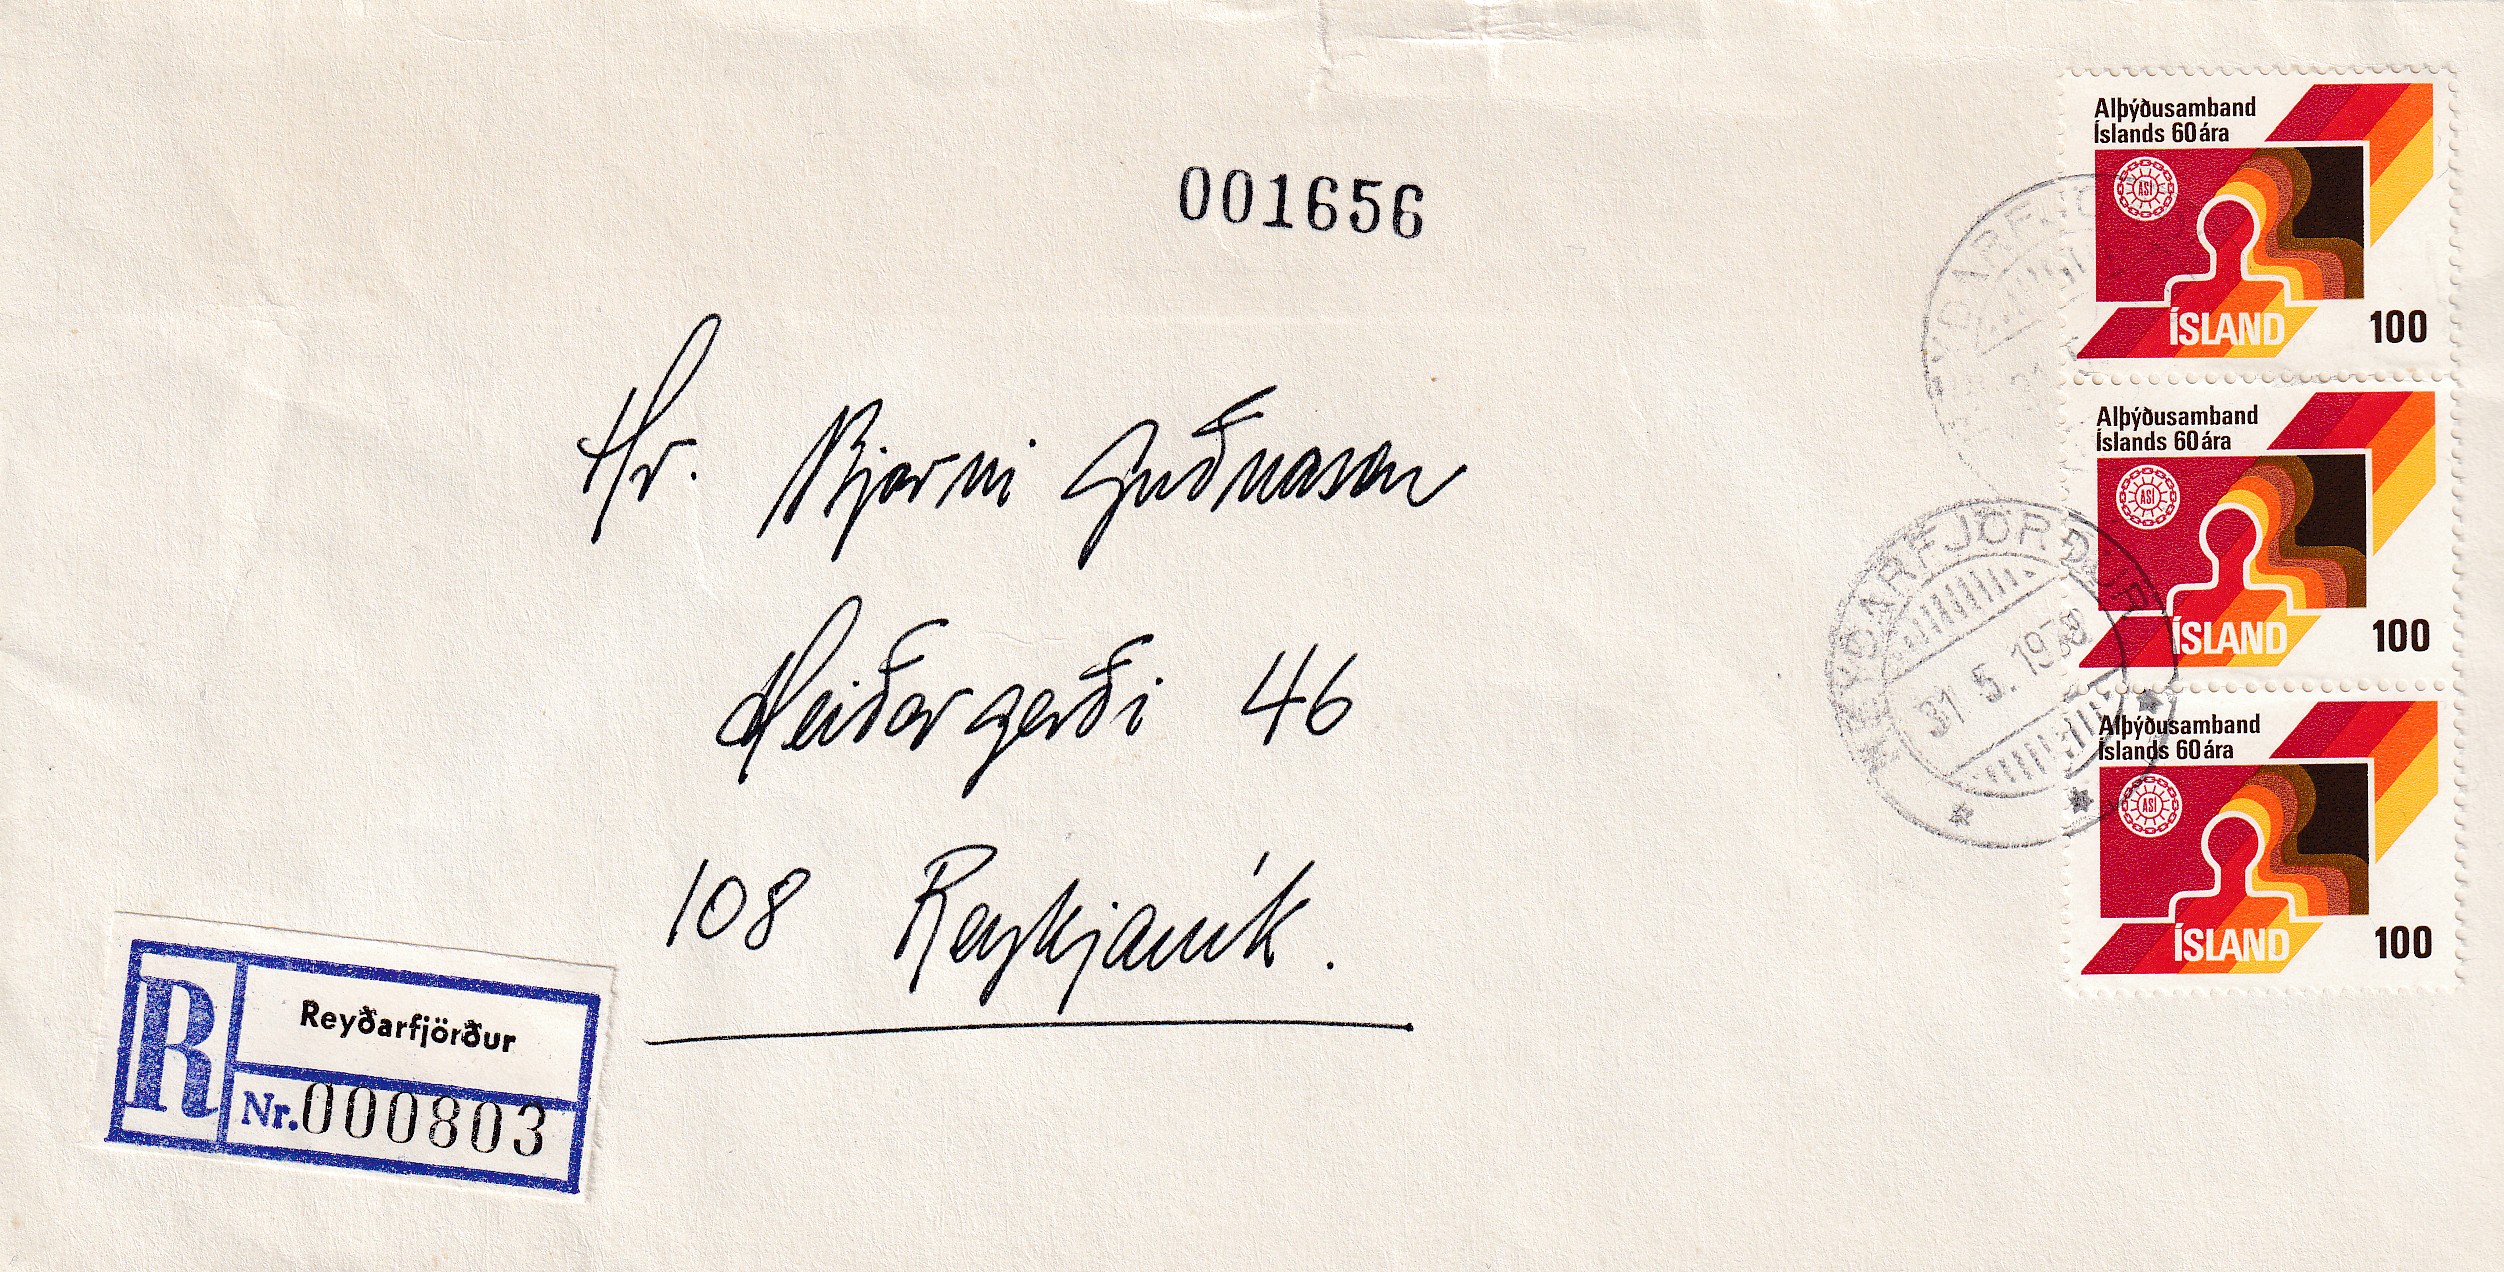 001656
Alþýðusamband
Íslands 60 ára
ASÍ
ÍSLAND 100
Alþýðusamband
Íslands 60 ára
ASÍ
ÍSLAND 100
Alþýðusamband
Íslands 60 ára
ASÍ
ÍSLAND 100
REYÐARFJÖRÐUR
31.5.1978
Hr. Bjarni Guðnason
Heiðargerði 46
108 Reykjavík.
R
Reyðarfjörður
Nr. 000803